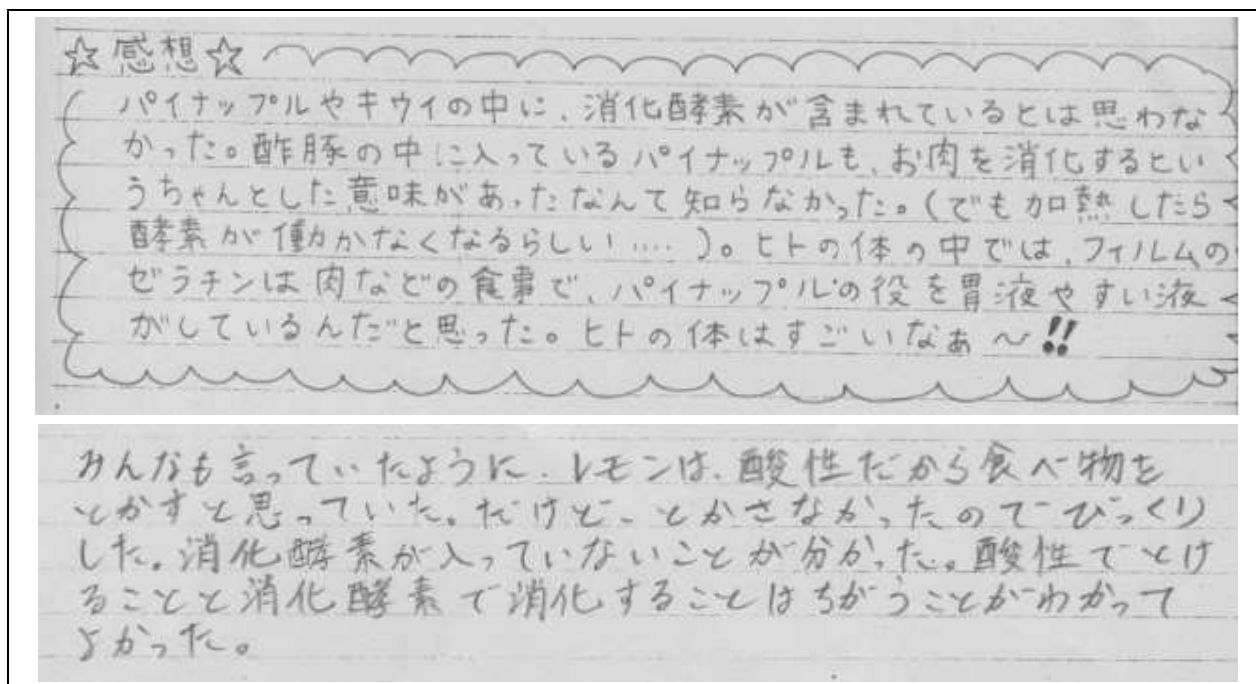 ☆感想☆
パイナップルやキウイの中に、消化酵素が含まれているとは思わな
かった。酢豚の中に入っているパイナップルも、お肉を消化するとい
うちゃんとした意味があったなんて知らなかった。(でも加熱したら
酵素が働かなくなるらしい....)。ヒトの体の中では、フィルムの
ゼラチンは肉などの食事で、パイナップルの役を胃液やすい液
がしているんだと思った。ヒトの体はすごいなぁ〜!!
みんなも言っていたように、レモンは、酸性だから食べ物を
とかすと思っていた。だけど、とかさなかったのでびっくり
した。消化酵素が入っていないことが分かった。酸性でとけ
ることと消化酵素で消化することはちがうことがわかって
よかった。